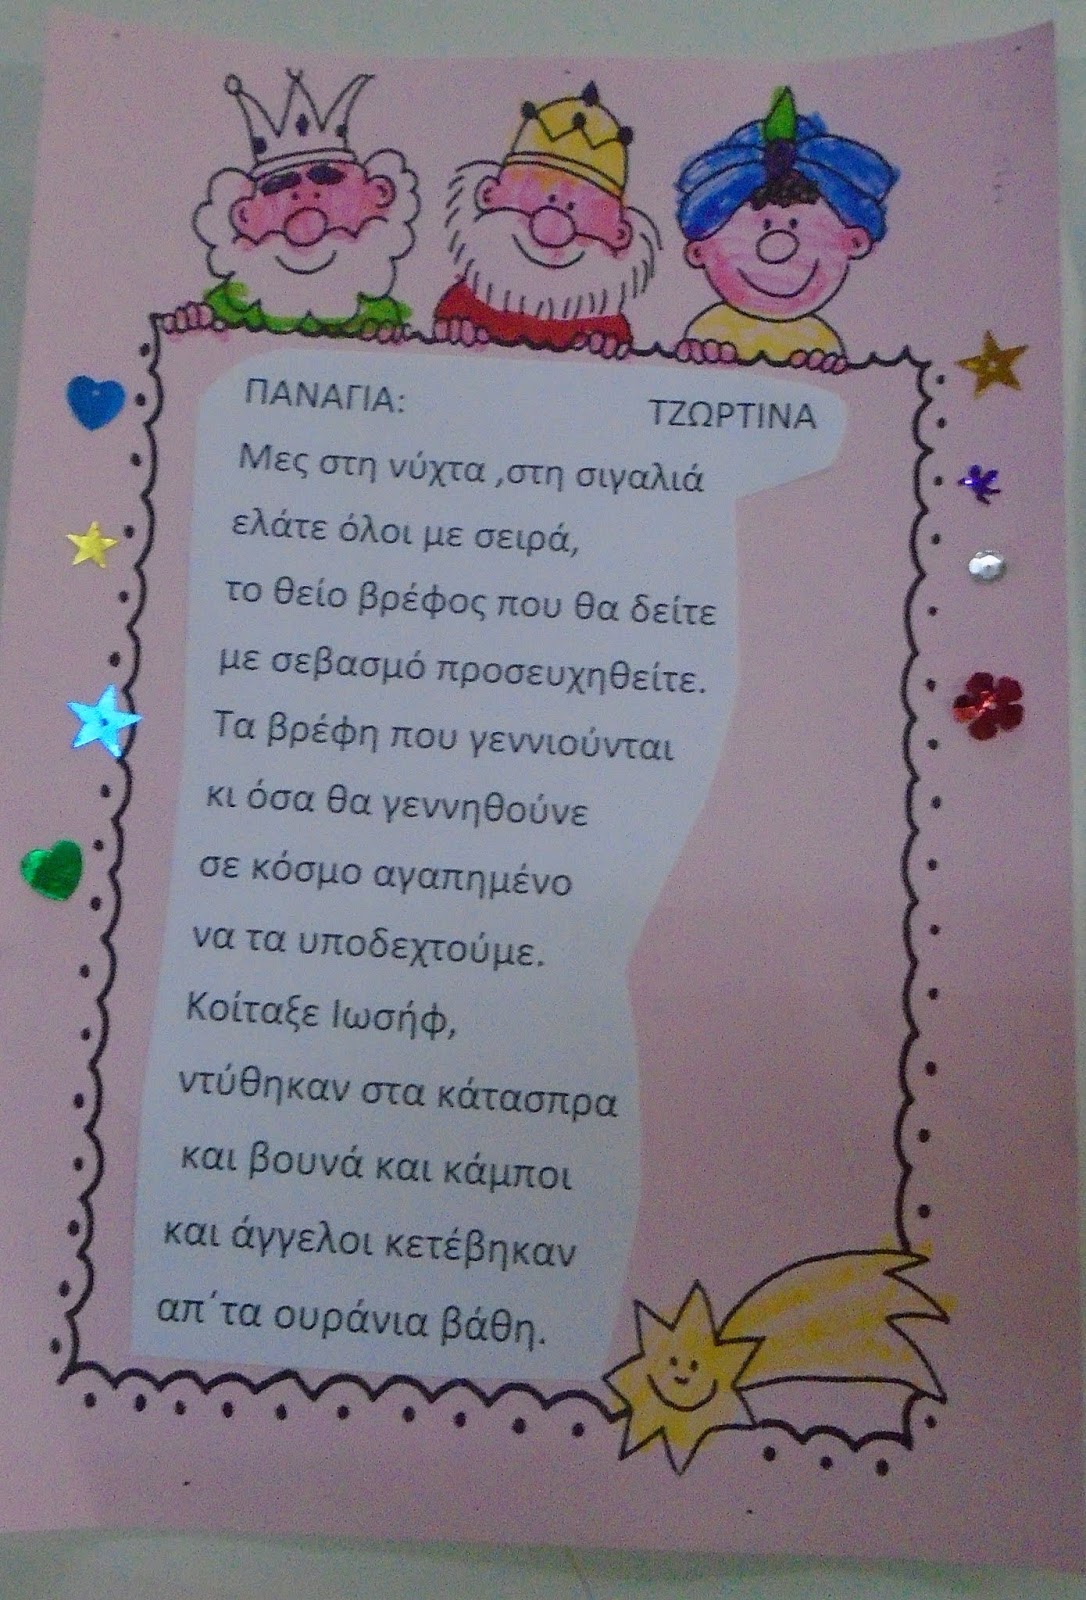 ΠΑΝΑΓΙΑ: ΤΖΩΡΤΙΝΑ
Μες στη νύχτα ,στη σιγαλιά
ελάτε όλοι με σειρά,
το θείο βρέφος που θα δείτε
με σεβασμό προσευχηθείτε.
Τα βρέφη που γεννιούνται
κι όσα θα γεννηθούνε
σε κόσμο αγαπημένο
να τα υποδεχτούμε.
Κοίταξε Ιωσήφ,
ντύθηκαν στα κάτασπρα
και βουνά και κάμποι
και άγγελοι κετέβηκαν
απ΄τα ουράνια βάθη.